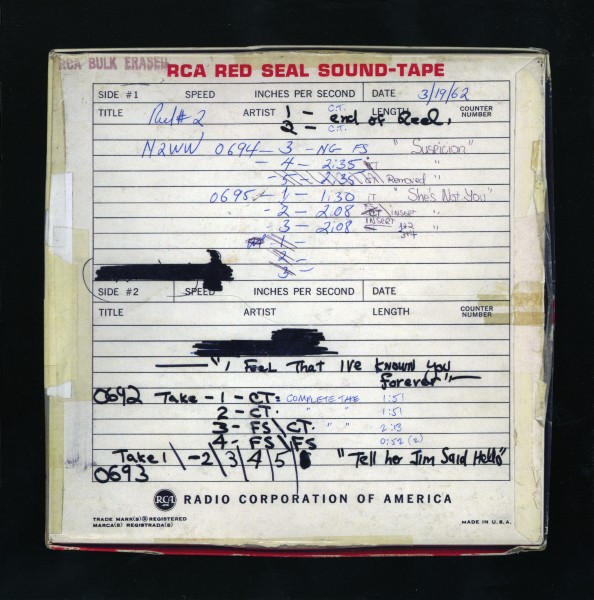 RCA BULK ERASED
RCA RED SEAL SOUND-TAPE
SIDE #1 SPEED INCHES PER SECOND DATE 3/19/62
TITLE Reel #2 ARTIST 1 - C.T. LENGTH COUNTER NUMBER
2 - C.T. end of Reel.
N2WW 0694 - 3 - NG FS "Suspicion"
- 4 - 2:35 "
- 5 - 2:35 Removed "
0695 - 1 - 1:30 "She's Not You"
- 2 - 2:08 INSERT "
- 3 - 2:08 INSERT "
1 -
2 -
3 -
SIDE #2 SPEED INCHES PER SECOND DATE
TITLE ARTIST LENGTH COUNTER NUMBER
"I Feel That I've KNOWN You
Forever"
0692 Take - 1 - CT: COMPLETE TAKE 1:51
2 - CT. " " 1:51
3 - FS \ CT. " " 2:13
4 - FS \ FS 0:52 (2)
Take 1 \ -2 \ 3 \ 4 \ 5 \ "Tell her Jim Said Hello"
0693
RCA RADIO CORPORATION OF AMERICA
TRADE MARK(S)® REGISTERED
MARCA(S) REGISTRADA(S)
MADE IN U.S.A.